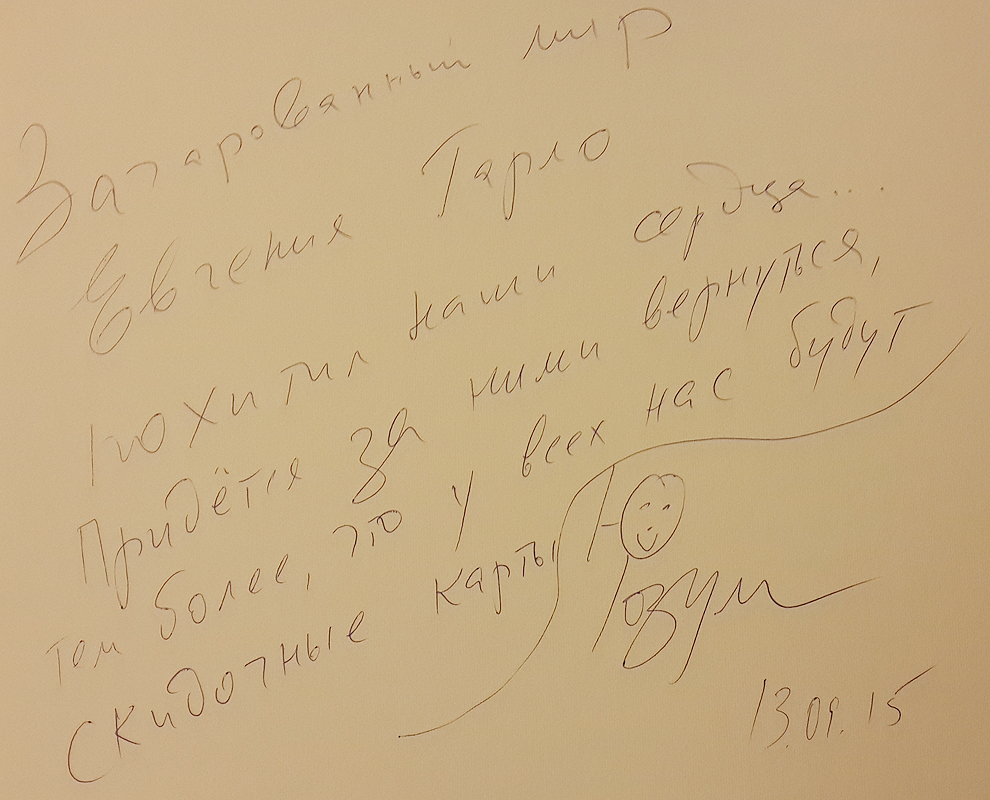 Зачарованный мир
Евгения Тарло
похитил наши сердца...
Придётся за ними вернуться,
тем более, что у всех нас будут
скидочные карты
Ю
Розум
13.09.15